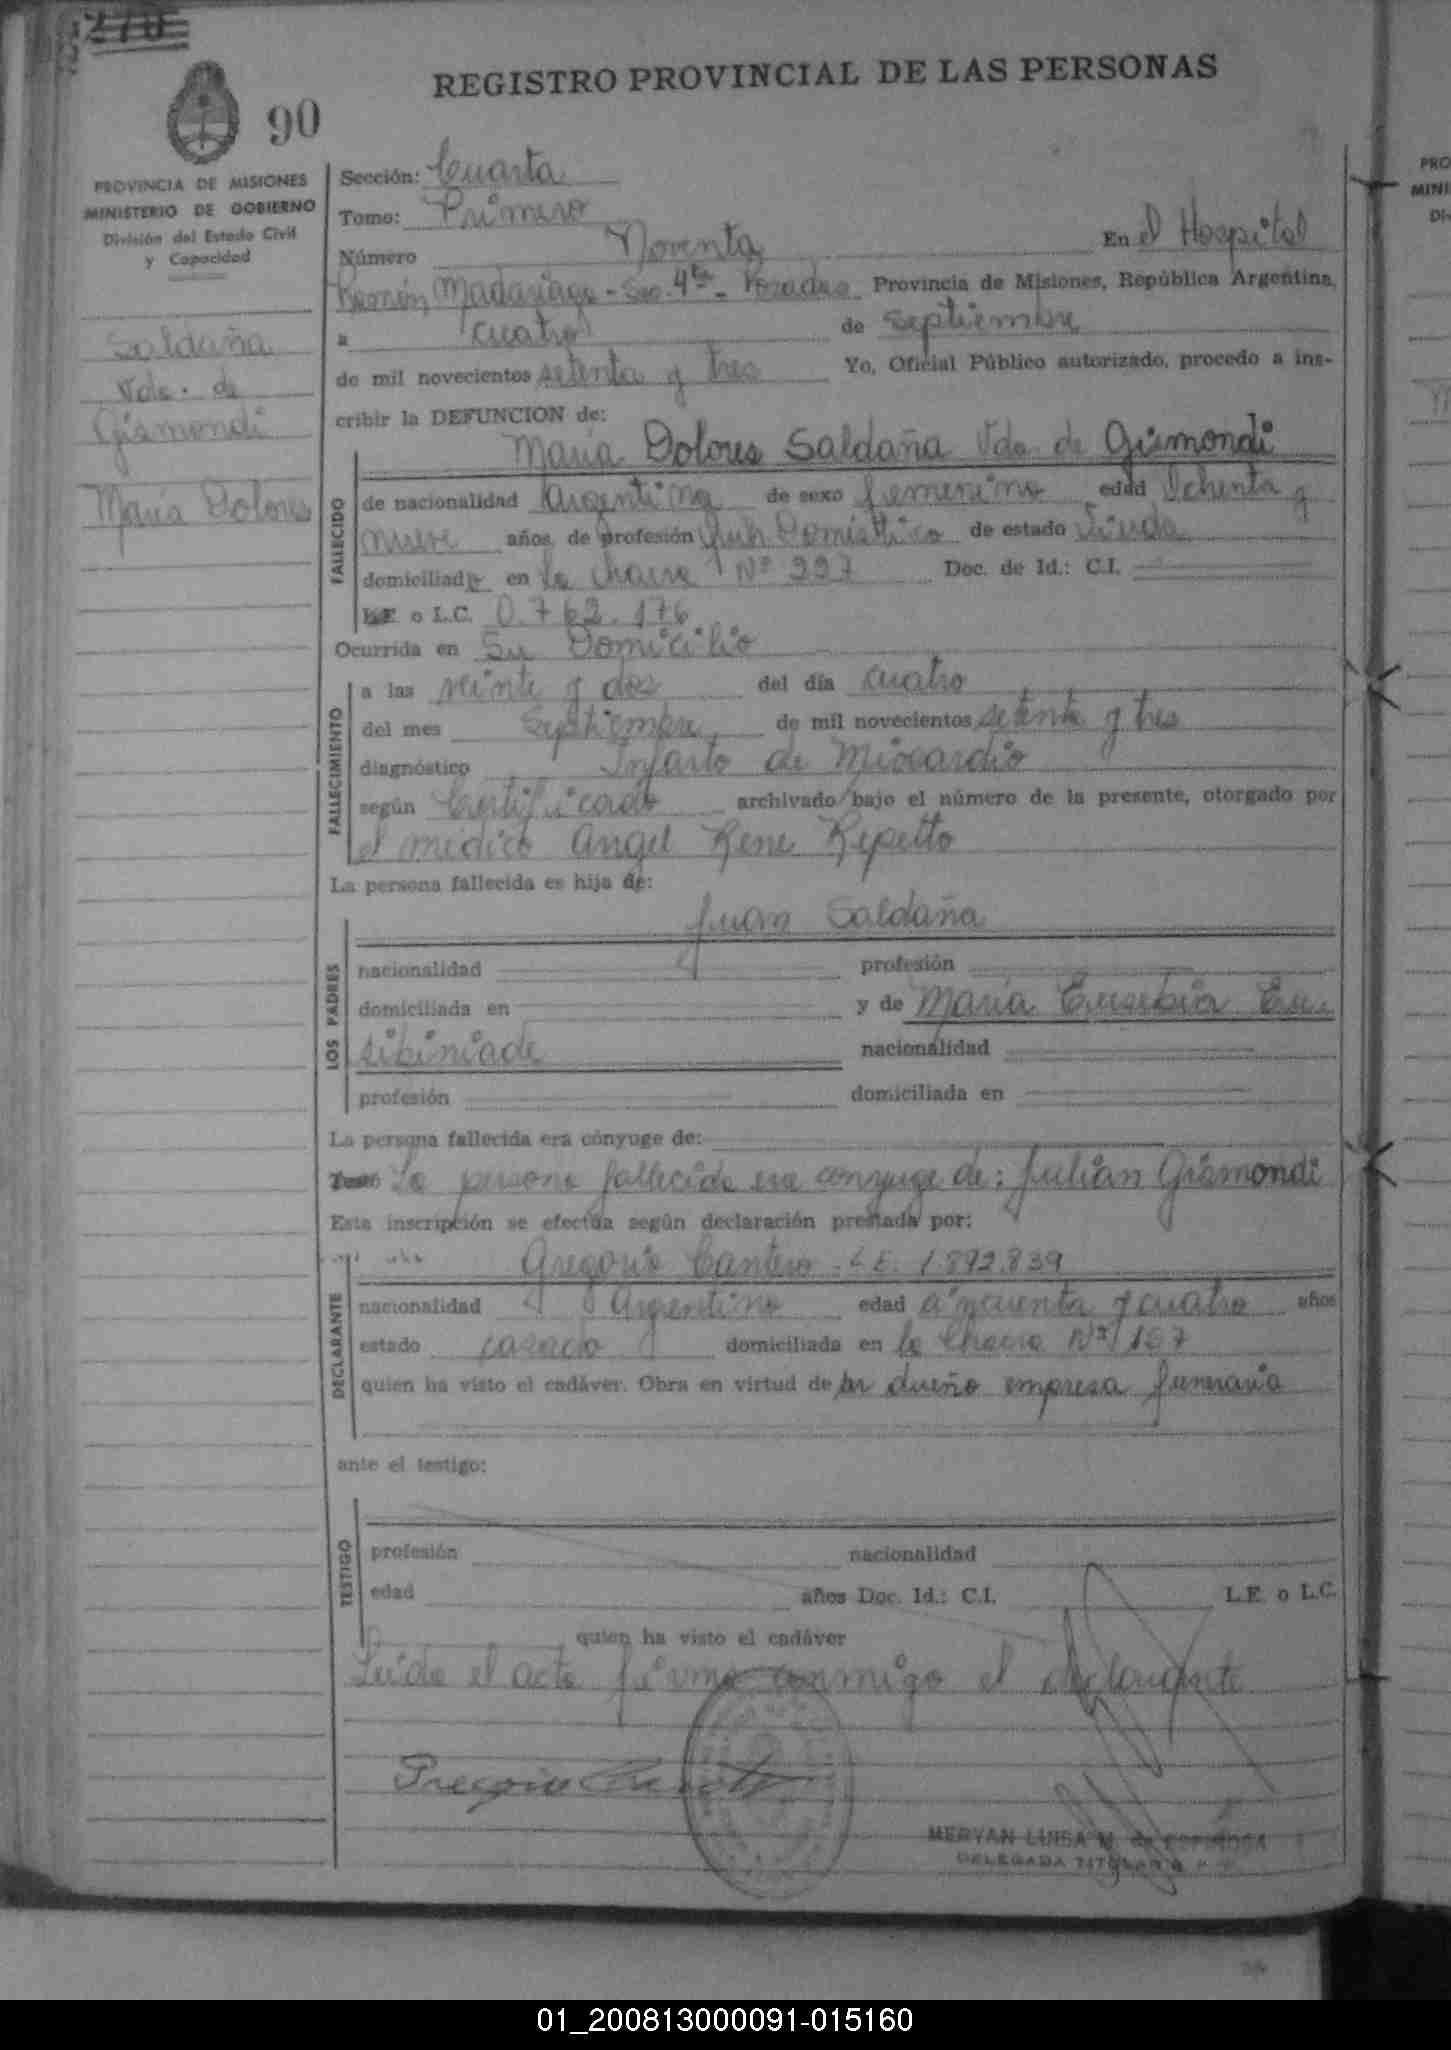 270
REGISTRO PROVINCIAL DE LAS PERSONAS
90
PROVINCIA DE MISIONES
MINISTERIO DE GOBIERNO
División del Estado Civil
y Capacidad
Saldaña
Vda. de
Gismondi
María Dolores
Sección: Cuarta
Tomo: Primero
Número Noventa En el Hospital
Ramón Madariaga - Sec. 4ta - Posadas Provincia de Misiones, República Argentina,
a cuatro de septiembre
de mil novecientos setenta y tres Yo, Oficial Público autorizado, procedo a ins-
cribir la DEFUNCION de:
María Dolores Saldaña Vda de Gismondi
FALLECIDO
de nacionalidad Argentina de sexo femenino edad Ochenta y
nueve años, de profesión de estado Viuda
domiciliada en la chacra Nº 227 Doc. de Id.: C.I.
o L.C. 0.762.176
Ocurrida en Su Domicilio
FALLECIMIENTO
a las veinte y dos del día cuatro
del mes Septiembre de mil novecientos setenta y tres
diagnóstico Infarto de Miocardio
según Certificado archivado bajo el número de la presente, otorgado por
el médico Angel Rene Repetto
La persona fallecida es hija de:
LOS PADRES
Juan Saldaña
nacionalidad profesión
domiciliada en y de María Eusebia
nacionalidad
profesión domiciliada en
La persona fallecida era cónyuge de:
La persona fallecida era conyuge de: Julián Gismondi
Esta inscripción se efectúa según declaración prestada por:
DECLARANTE
Gregorio Cantero - L.E. 1.892.839
nacionalidad Argentino edad cincuenta y cuatro años
estado casado domiciliada en la Chacra Nº 167
quien ha visto el cadáver. Obra en virtud de ser dueño empresa funeraria
ante el testigo:
TESTIGO
profesión nacionalidad
edad años Doc. Id.: C.I. L.E. o L.C.
quien ha visto el cadáver
Leída el acta firma conmigo el declarante
MERYAN LUISA M. de ESPINOSA
DELEGADA TITULAR
PRO
MINI
Di
01_200813000091-015160